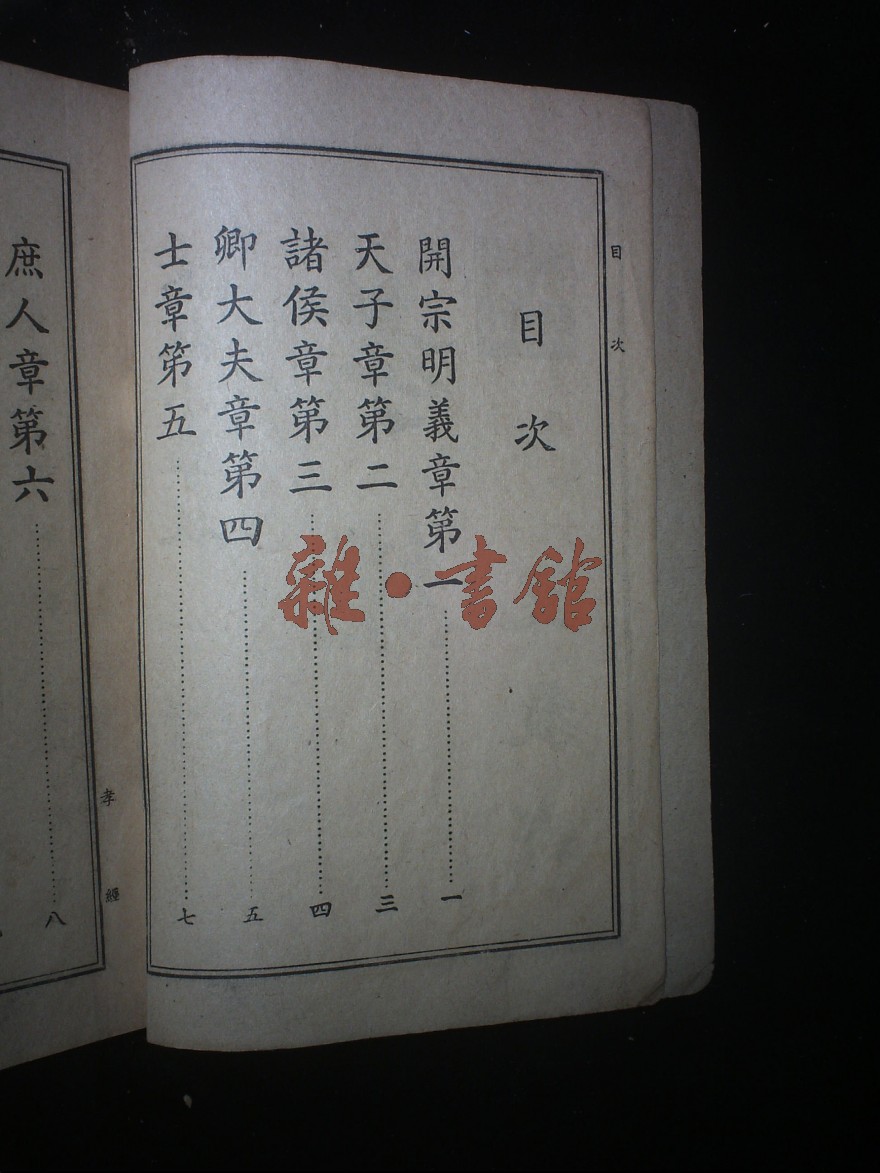 目次
目次
開宗明義章第一……一
天子章第二……三
諸侯章第三……四
卿大夫章第四……五
士章第五……七
孝經
庶人章第六……八
雜•書館